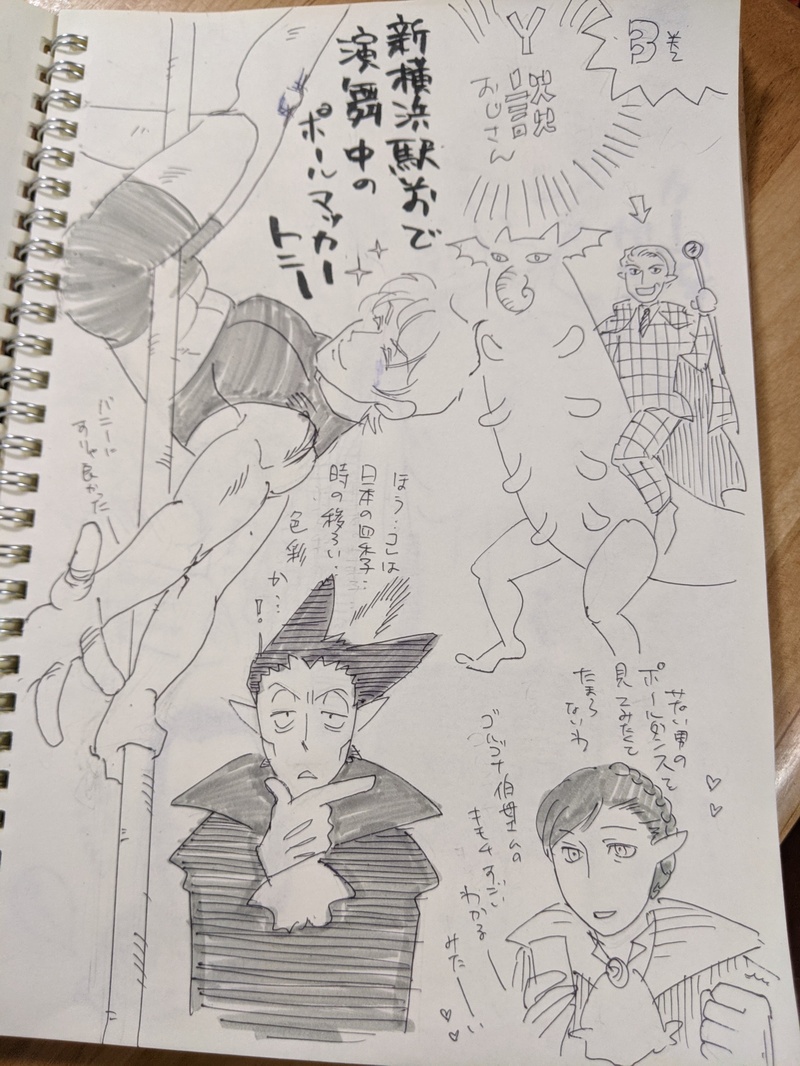 3巻
Y
談
おじさん
新横浜駅前で
演舞中の
ポールマッカ
トニー
バニーに
すりゃ良かった
ほう…コレは
日本の四季…
時の移ろい…
色彩
か…
!
若い男の
ポールダンスって
見てみたくて
たまら
ないわ
ゴルゴナ伯母さんの
きもちすごい
わかる
みたーい